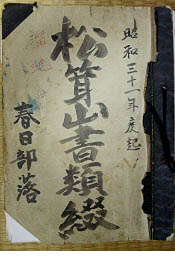 昭和三十一年度起
松算山書類綴
春日部落